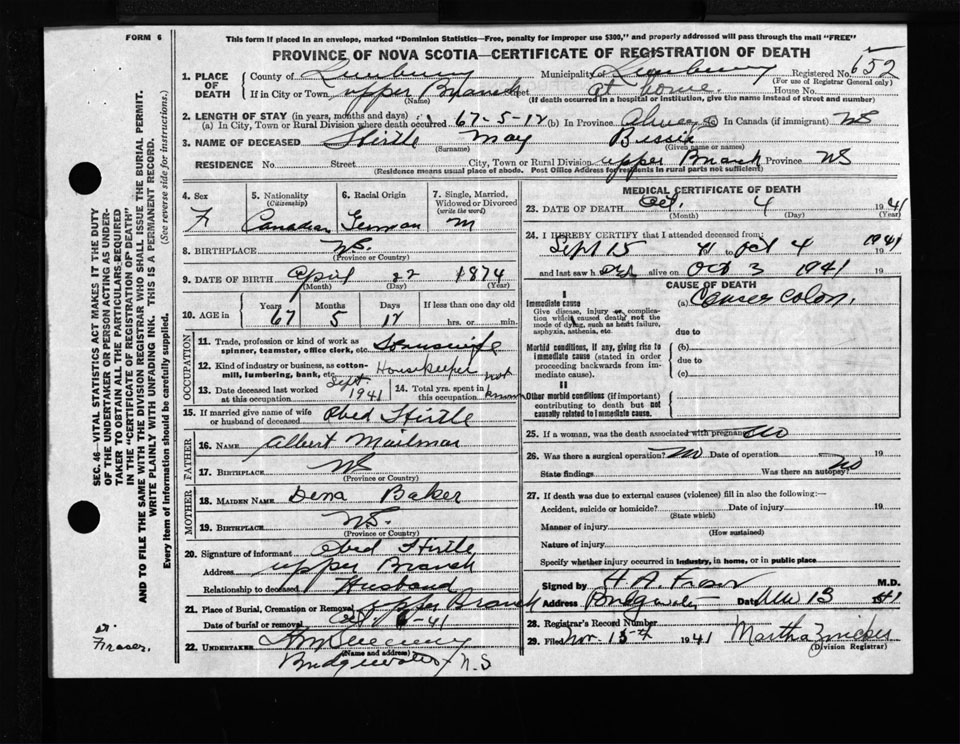 FORM 6
This form if placed in an envelope, marked "Dominion Statistics—Free, penalty for improper use $300," and properly addressed will pass through the mail "FREE"
PROVINCE OF NOVA SCOTIA—CERTIFICATE OF REGISTRATION OF DEATH
652
1. PLACE OF DEATH County of Lunenburg Municipality of Lunenburg Registered No.
(For use of Registrar General only)
If in City or Town Upper Branch Street at home. House No.
(Name) (If death occurred in a hospital or institution, give the name instead of street and number)
2. LENGTH OF STAY (in years, months and days)
(a) In City, Town or Rural Division where death occurred 67-5-12 (b) In Province Always (c) In Canada (if immigrant) NS
3. NAME OF DECEASED Hirtle May Bessie
(Surname) (Given name or names)
RESIDENCE No. Street City, Town or Rural Division Upper Branch Province NS
(Residence means usual place of abode. Post Office Address for residents in rural parts not sufficient)
4. Sex F
5. Nationality (Citizenship) Canadian
6. Racial Origin German
7. Single, Married, Widowed or Divorced (write the word) M
8. BIRTHPLACE NS.
(Province or Country)
9. DATE OF BIRTH April 22 1874
(Month) (Day) (Year)
10. AGE in Years Months Days If less than one day old
67 5 12 hrs. or min.
OCCUPATION
11. Trade, profession or kind of work as spinner, teamster, office clerk, etc. Housewife
12. Kind of industry or business, as cotton-mill, lumbering, bank, etc. Housekeeper
13. Date deceased last worked at this occupation Sept 1941
14. Total yrs. spent in this occupation not known
15. If married give name of wife or husband of deceased Obed Hirtle
FATHER
16. NAME Albert Mailman
17. BIRTHPLACE NS
(Province or Country)
MOTHER
18. MAIDEN NAME Dena Baker
19. BIRTHPLACE NS.
(Province or Country)
20. Signature of informant Obed Hirtle
Address Upper Branch
Relationship to deceased Husband
21. Place of Burial, Cremation or Removal Upper Branch
Date of burial or removal Oct 6-41
22. UNDERTAKER
(Name and address)
Bridgewater N.S
MEDICAL CERTIFICATE OF DEATH
23. DATE OF DEATH Oct. 4 1941
(Month) (Day) (Year)
24. I HEREBY CERTIFY that I attended deceased from:
Sept 15 41 to Oct 4 1941
and last saw h er alive on Oct 3 1941 19
CAUSE OF DEATH
I
Immediate cause (a) Cancer Colon.
Give disease, injury or complication which caused death, not the mode of dying, such as heart failure, asphyxia, asthenia, etc.
due to
Morbid conditions, if any, giving rise to immediate cause (stated in order proceeding backwards from immediate cause). (b)
due to
(c)
II
Other morbid conditions (if important) contributing to death but not causally related to immediate cause.
25. If a woman, was the death associated with pregnancy No
26. Was there a surgical operation? No Date of operation 19
State findings Was there an autopsy? No
27. If death was due to external causes (violence) fill in also the following:—
Accident, suicide or homicide? Date of injury 19
(State which)
Manner of injury
(How sustained)
Nature of injury
Specify whether injury occurred in industry, in home, or in public place
Signed by H A Fraser M.D.
Address Bridgewater Date 13 41
28. Registrar's Record Number
29. Filed Nov. 1941 Martha Zwicker
(Division Registrar)
SEC. 46—VITAL STATISTICS ACT MAKES IT THE DUTY
OF THE UNDERTAKER OR PERSON ACTING AS UNDER-
TAKER TO OBTAIN ALL THE PARTICULARS REQUIRED
IN THE "CERTIFICATE OF REGISTRATION OF DEATH"
AND TO FILE THE SAME WITH THE DIVISION REGISTRAR WHO SHALL ISSUE THE BURIAL PERMIT.
WRITE PLAINLY WITH UNFADING INK. THIS IS A PERMANENT RECORD.
Every item of information should be carefully supplied. (See reverse side for instructions.)
Dr.
Fraser.